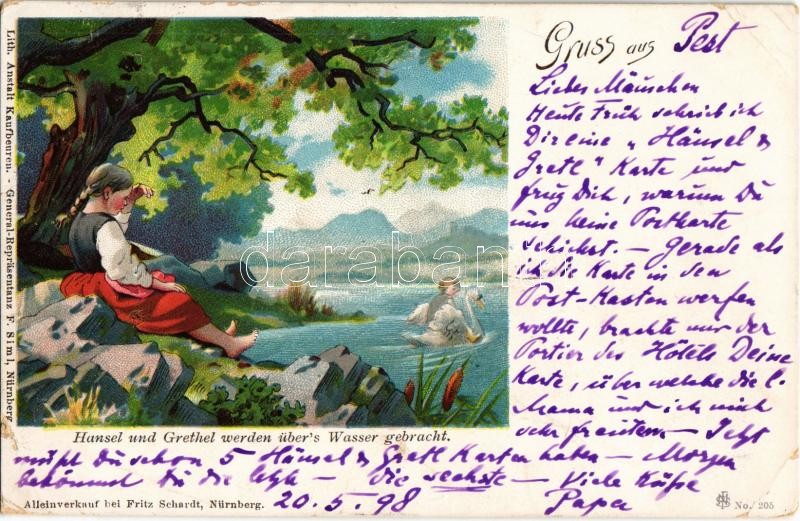 Gruss aus Pest
Liebes Mäuschen
Heute Früh schrieb ich
Dir eine „Hänsel &
Gretl" Karte und
frug Dich, warum Du
uns keine Postkarte
schickst. – Gerade als
ich die Karte in den
Post-Kasten werfen
wollte, brachte mir der
Portier des Hôtels Deine
Karte, über welche die l.
Mama und ich mich
sehr freuten. – Jetzt
mußt Du schon 5 Hänsel & Gretl Karten haben – Morgen
bekommst Du die letzte – Die sechste – Viele Küsse
20.5.98 Papa
Hansel und Grethel werden über's Wasser gebracht.
Alleinverkauf bei Fritz Schardt, Nürnberg.
No. 205
Lith. Anstalt Kaufbeuren. - General-Repräsentanz F. Siml, Nürnberg
darabanth